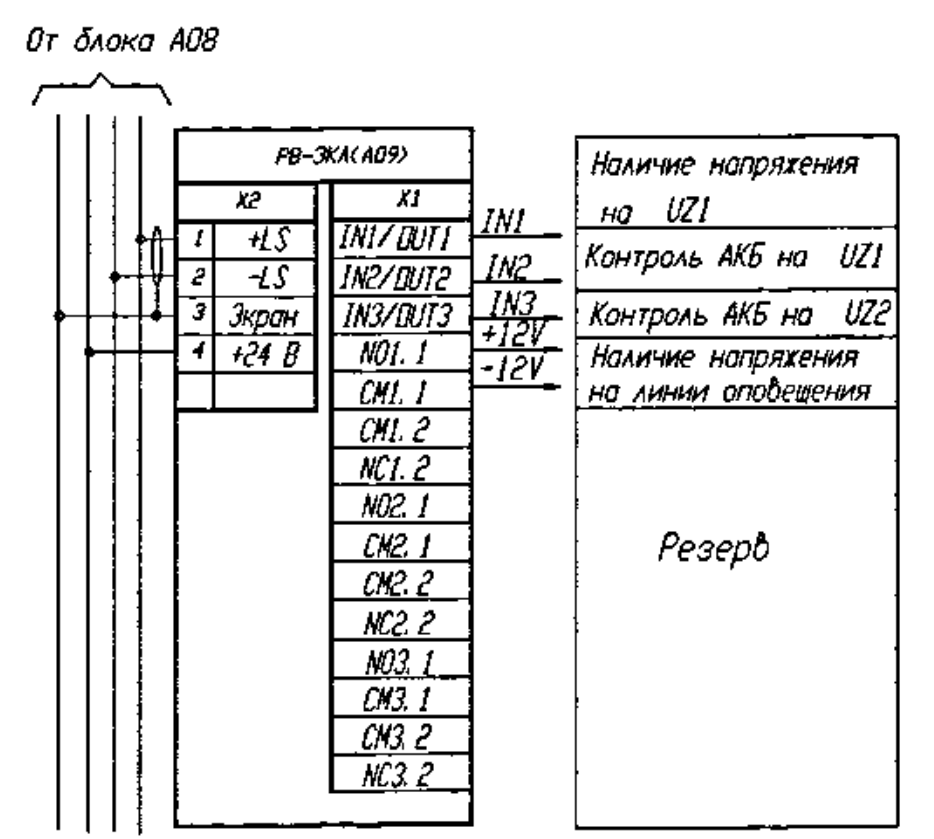 От блока А08
РВ-ЭКЛ(А09)
X2
X1
1 +LS
2 -LS
3 Экран
4 +24 В
IN1/OUT1
IN2/OUT2
IN3/OUT3
NO1. 1
CM1. 1
CM1. 2
NC1. 2
NO2. 1
CM2. 1
CM2. 2
NC2. 2
NO3. 1
CM3. 1
CM3. 2
NC3. 2
IN1
IN2
IN3
+12V
-12V
Наличие напряжения
на UZ1
Контроль АКБ на UZ1
Контроль АКБ на UZ2
Наличие напряжения
на линии оповещения
Резерв